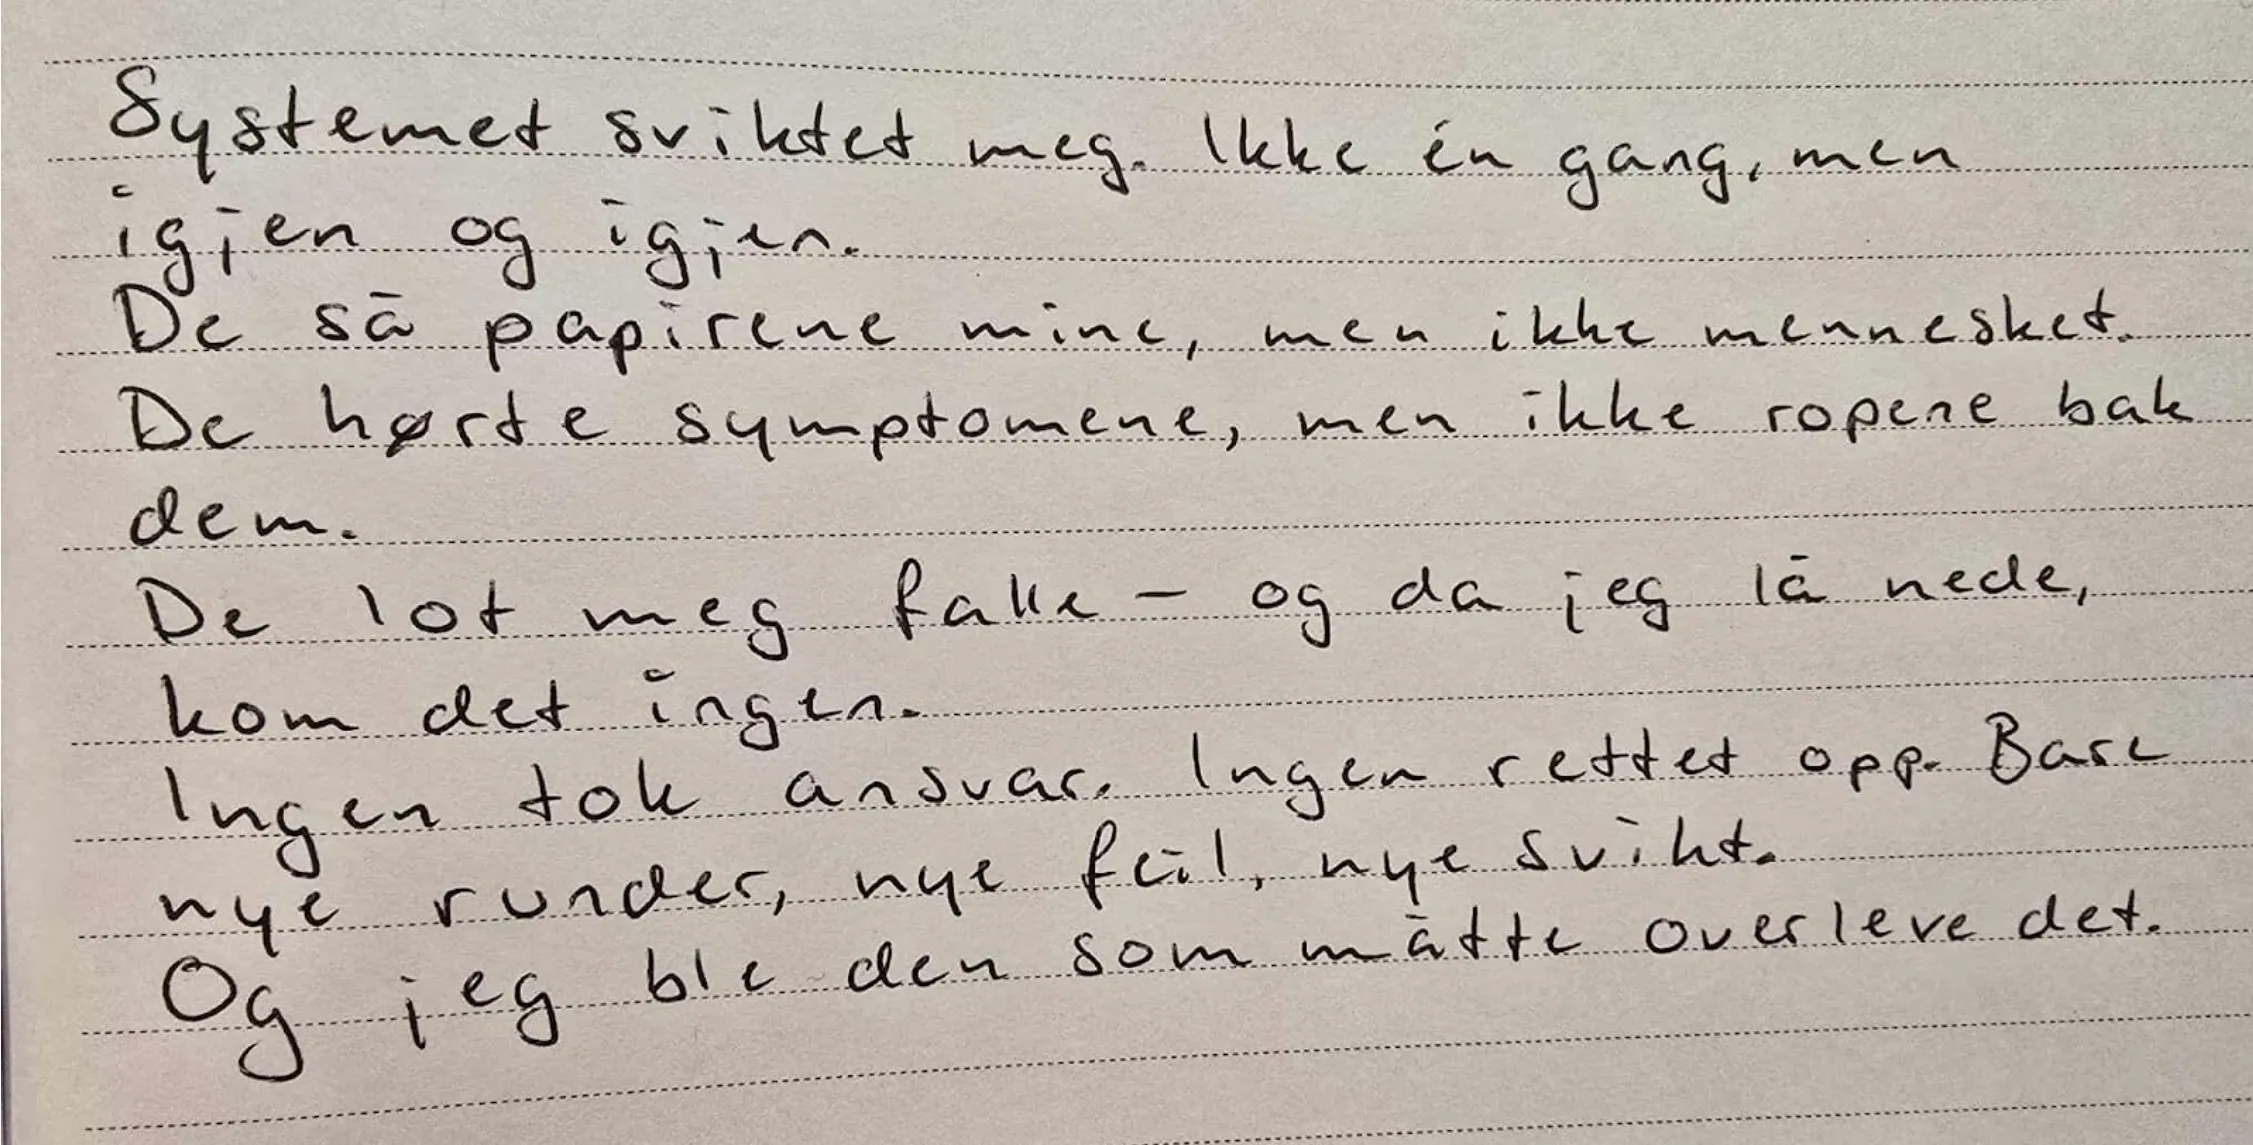 Systemet sviktet meg. Ikke én gang, men
igjen og igjen.
De så papirene mine, men ikke mennesket.
De hørte symptomene, men ikke ropene bak
dem.
De lot meg falle – og da jeg lå nede,
kom det ingen.
Ingen tok ansvar. Ingen rettet opp. Bare
nye runder, nye feil, nye svikt.
Og jeg ble den som måtte overleve det.